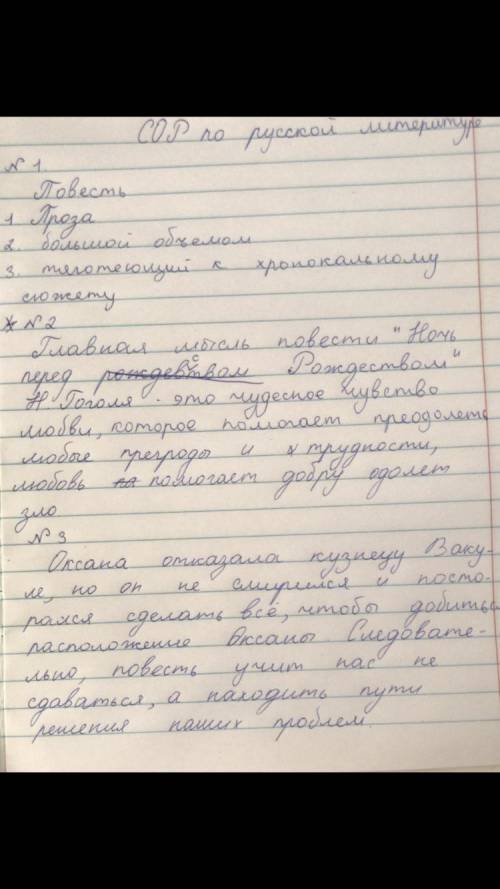 СОР по русской литературе
№ 1
Повесть
1 Проза
2. большой объемом
3. тяготеющий к хропокальному
сюжету
№ 2
Главная мысль повести "Ночь
перед рождевством Рождеством"
Н. Гоголя - это чудесное чувство
любви, которое помогает преодолеть
любые прегроды и трудности,
любовь помогает добру одолет
зло
№ 3
Оксана отказала кузнецу Ваку-
ле, но он не смирился и поста-
рался сделать всё, чтобы добиться
расположение Оксаны Следовате-
льно, повесть учит нас не
сдаваться, а находить пути
решения наших проблем.